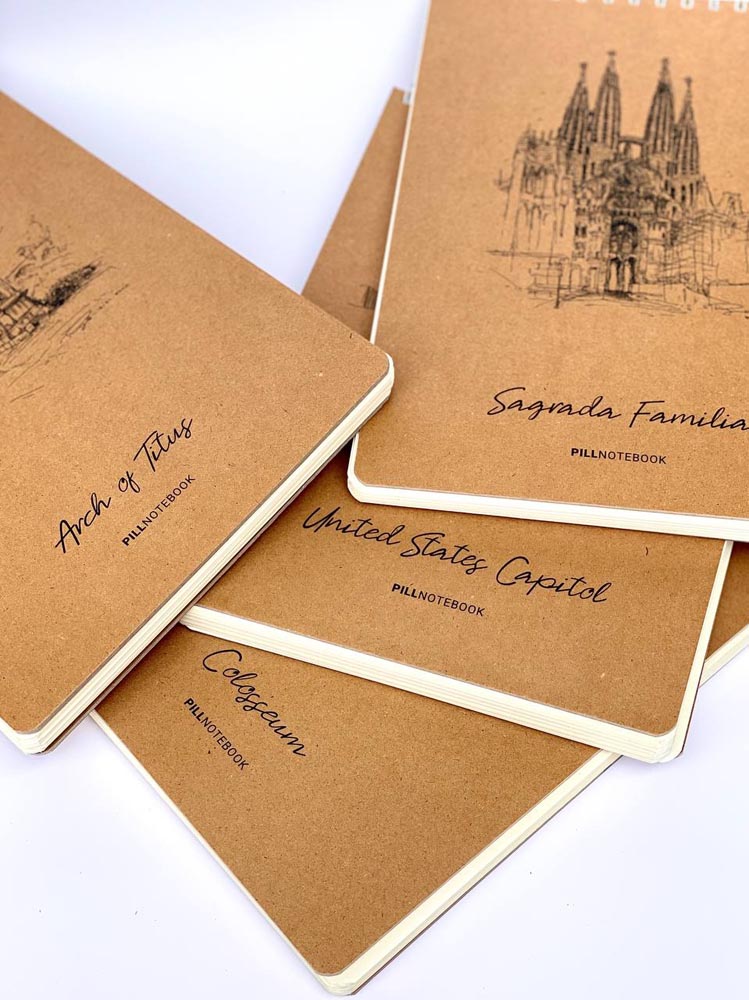 Sagrada Familia
PILLNOTEBOOK
Arch of Titus
PILLNOTEBOOK
United States Capitol
PILLNOTEBOOK
Colosseum
PILLNOTEBOOK